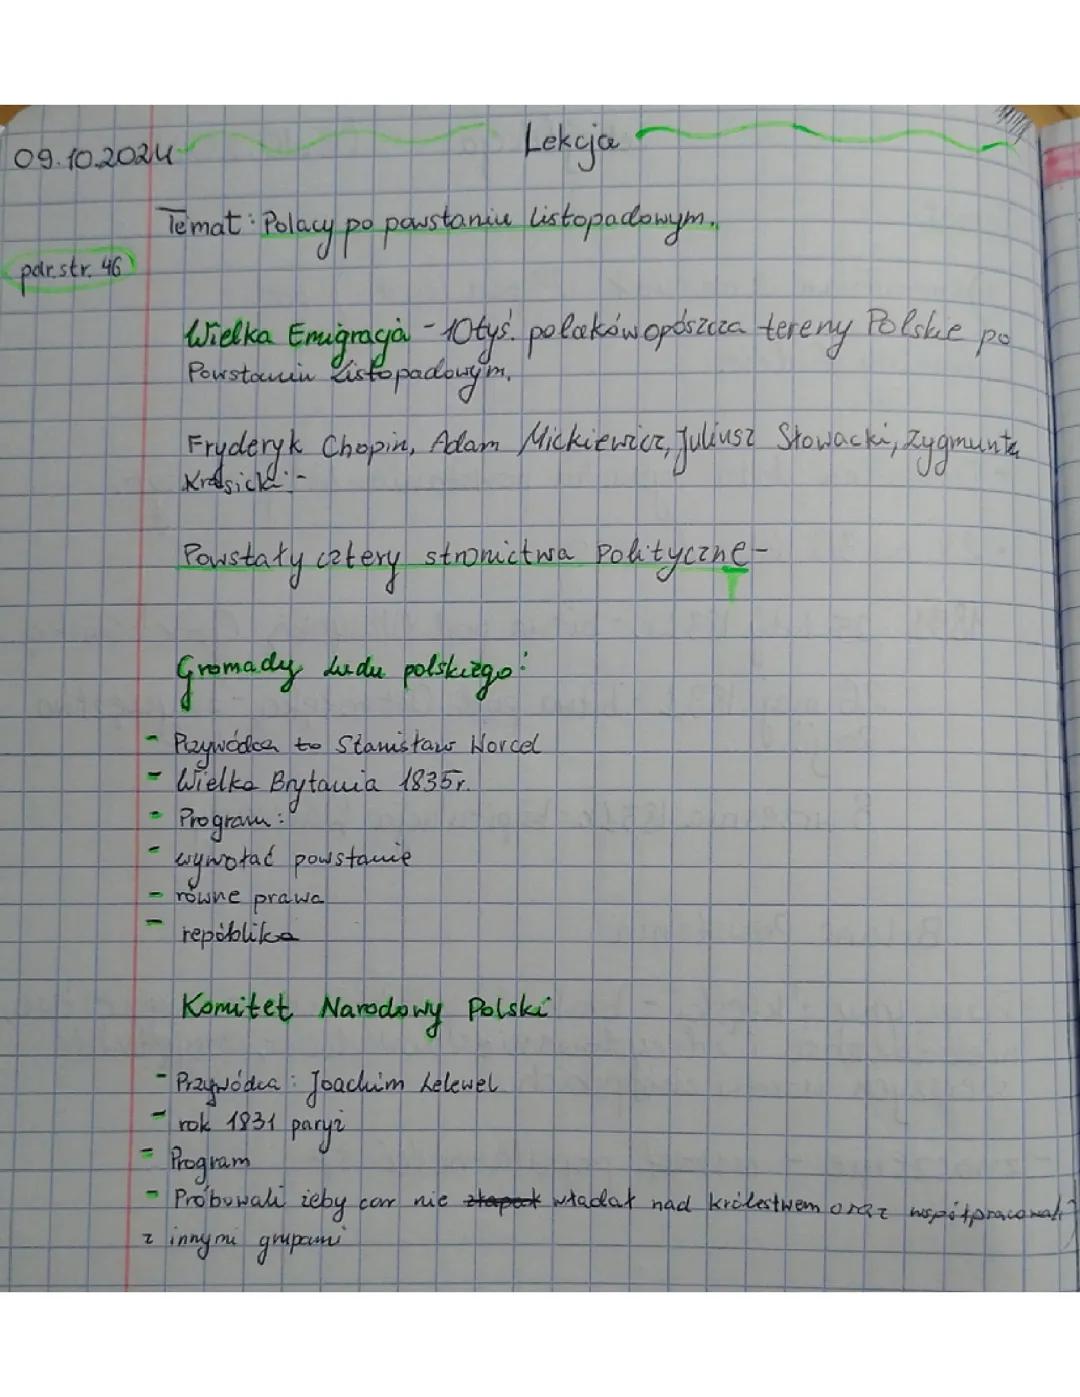 09.10.2024 Lekcja
Temat: Polacy po powstaniu listopadowym.
pdr.str. 46
Wielka Emigracja - 10tyś. polaków opószcza tereny Polskie po
Powstaniu Listopadowym.
Fryderyk Chopin, Adam Mickiewicz, Juliusz Słowacki, Zygmunta
Krasicki -
Powstały cztery stronictwa Polityczne -
Gromady Ludu polskiego:
- Przywódca to Stanisław Worcel
- Wielka Brytania 1835r.
- Program:
- wywołać powstanie
- równe prawa
- repóblika
Komitet Narodowy Polski
- Przywódca: Joachim Lelewel
- rok 1831 paryż
- Program
- Próbowali żeby car nie władał nad królestwem oraz współpracowali
z innymi grupami